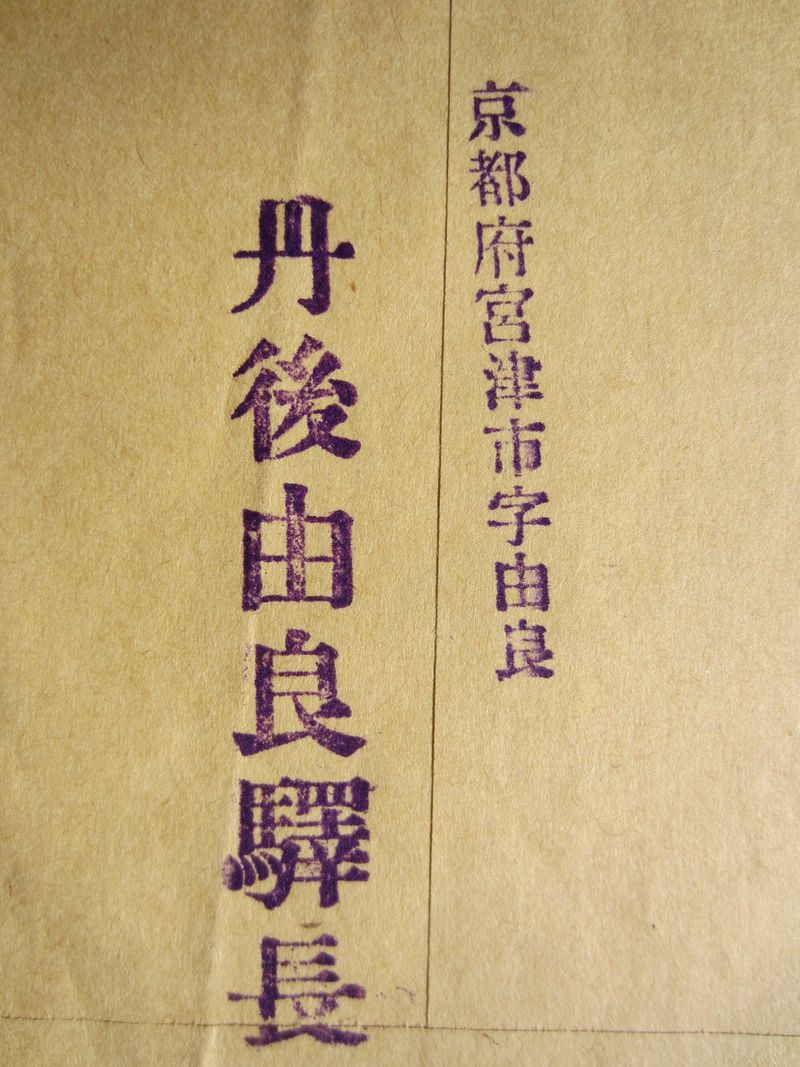 京都府宮津市字由良
丹後由良驛長